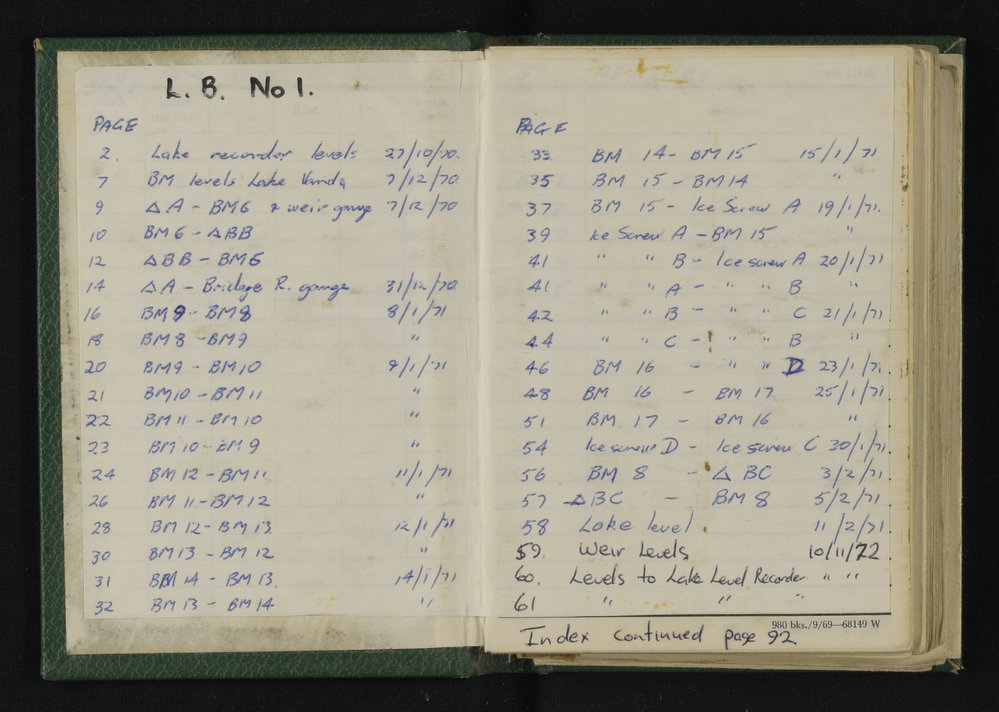 L. B. No 1.
PAGE
2. Lake recorder levels 27/10/70.
7 BM levels Lake Vanda 7/12/70
9 △A - BM6 & weir gauge 7/12/70
10 BM6 - △BB
12 △BB - BM6
14 △A - Bridge R. gauge 31/12/70
16 BM9 - BM8 8/1/71
18 BM8 - BM9 "
20 BM9 - BM10 9/1/71
21 BM10 - BM11 "
22 BM11 - BM10 "
23 BM10 - BM9 "
24 BM12 - BM11 11/1/71
26 BM11 - BM12 "
28 BM12 - BM13 12/1/71
30 BM13 - BM12 "
31 BM14 - BM13. 14/1/71
32 BM13 - BM14 "
PAGE
33 BM 14 - BM 15 15/1/71
35 BM 15 - BM14 "
37 BM 15 - Ice Screw A 19/1/71.
39 Ice Screw A - BM 15 "
41 " " B - Ice screw A 20/1/71
41 " " A - " " B "
42 " " B - " " C 21/1/71
44 " " C - " " B "
46 BM 16 - " " D 23/1/71
48 BM 16 - BM 17 25/1/71
51 BM 17 - BM 16 "
54 Ice screw D - Ice screw C 30/1/71
56 BM 8 - △ BC 3/2/71
57 △BC - BM 8 5/2/71
58 Lake level. 11/2/71
59. Weir Levels 10/11/72
60. Levels to Lake Level Recorder " "
61 " " "
980 bks./9/69—68149 W
Index continued page 92